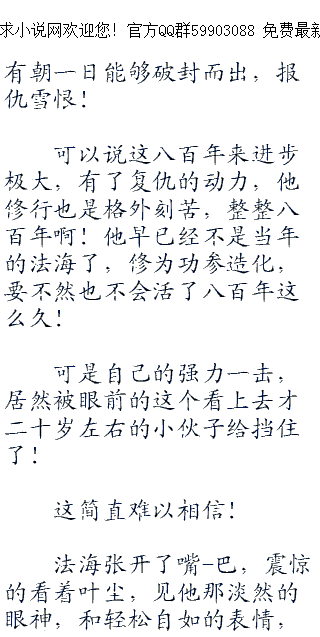 求小说网欢迎您！官方QQ群59903088 免费最新
有朝一日能够破封而出，报
仇雪恨！
可以说这八百年来进步
极大，有了复仇的动力，他
修行也是格外刻苦，整整八
百年啊！他早已经不是当年
的法海了，修为功参造化，
要不然也不会活了八百年这
么久！
可是自己的强力一击，
居然被眼前的这个看上去才
二十岁左右的小伙子给挡住
了！
这简直难以相信！
法海张开了嘴-巴，震惊
的看着叶尘，见他那淡然的
眼神，和轻松自如的表情，